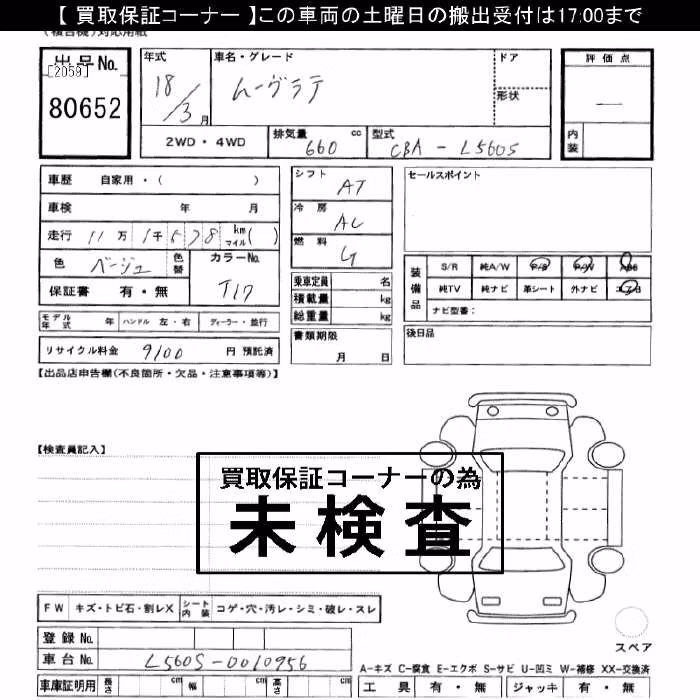 【 買取保証コーナー 】この車両の土曜日の搬出受付は17:00まで
出品No.
[2059]
80652
年式 18/3月
車名・グレード ムーヴラテ
ドア
形状
評価点 —
内装
2WD・4WD
排気量 660 cc
型式 CBA - L560S
車歴 自家用・( )
車検 年 月
走行 11万 1千578 km マイル( )
色 ベージュ 色替 カラーNo. T17
保証書 有・無
シフト AT
冷房 AC
燃料 G
乗車定員 名
積載量 kg
総重量 kg
書類期限 月 日
セールスポイント
装備品
S/R 純A/W P/S P/W ABS
純TV 純ナビ 革シート 外ナビ エアB
ナビ型番:
後日品
モデル年式 年 ハンドル 左・右 ディーラー・並行
リサイクル料金 9100 円 預託済
【出品店申告欄(不良箇所・欠品・注意事項等)】
【検査員記入】
買取保証コーナーの為
未検査
FW キズ・トビ石・割レX シート内装 コゲ・穴・汚レ・シミ・破レ・スレ
登録No.
車台No. L560S-0010956
車庫証明用 長さ cm 幅 cm 高さ cm
スペア
A-キズ C-腐食 E-エクボ S-サビ U-凹ミ W-補修 XX-交換済
工具 有・無 ジャッキ 有・無